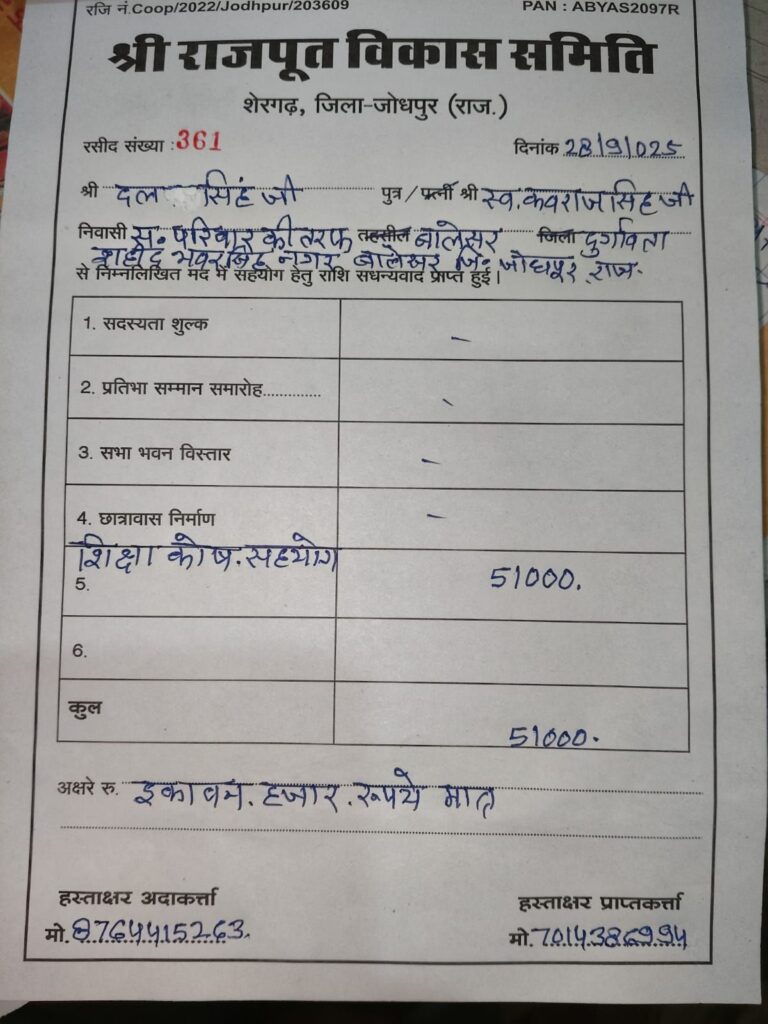 रजि नं.Coop/2022/Jodhpur/203609 PAN : ABYAS2097R
श्री राजपूत विकास समिति
शेरगढ़, जिला-जोधपुर (राज.)
रसीद संख्या :361 दिनांक 28/9/025
श्री दल सिंह जी पुत्र / पत्नी श्री स्व. कवराज सिंह जी
निवासी स. परिवार की तरफ तहसील बालेसर जिला दुर्गावता
शहीद भवरसिंह नगर बालेसर जि. जोधपुर राज.
से निम्नलिखित मद में सहयोग हेतु राशि सधन्यवाद प्राप्त हुई।
1. सदस्यता शुल्क -
2. प्रतिभा सम्मान समारोह............. -
3. सभा भवन विस्तार -
4. छात्रावास निर्माण -
शिक्षा कोष. सहयोग
5. 51000.
6.
कुल 51000.
अक्षरे रु. इकावन. हजार. रूपये मात्र
हस्ताक्षर अदाकर्त्ता हस्ताक्षर प्राप्तकर्त्ता
मो. 8764415263. मो. 7014386994